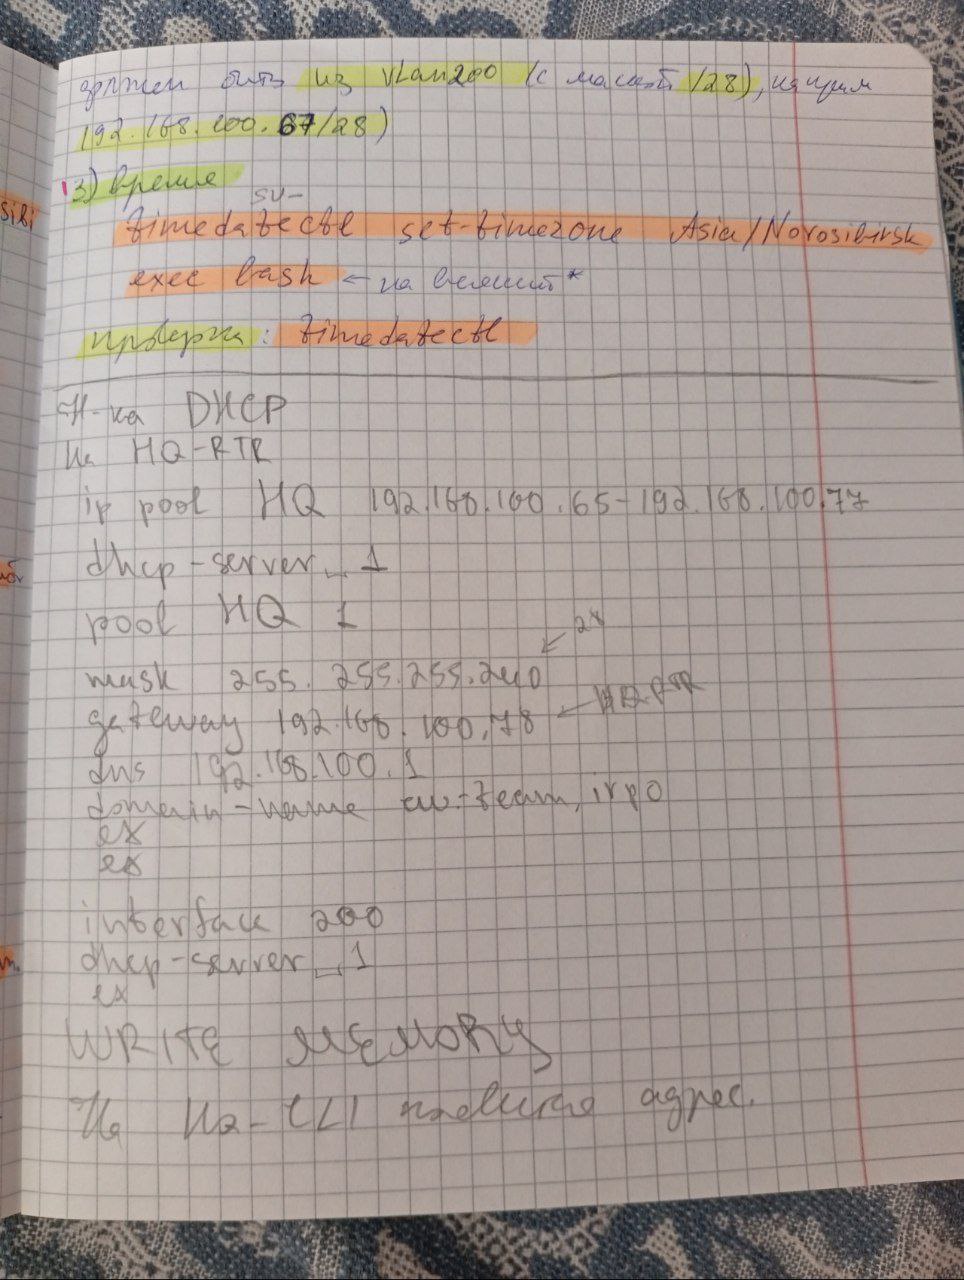 должен быть из vlan200 (с маской /28), наприм
192.168.100.67/28)
13) время
su-
timedatectl set-timezone Asia/Novosibirsk
exec bash ← на всякий*
проверка: timedatectl
Н-ка DHCP
На HQ-RTR
ip pool HQ 192.168.100.65-192.168.100.77
dhcp-server_1
pool HQ 1
28
mask 255.255.255.240
gateway 192.168.100.78 ← HQ-RTR
dns 192.168.100.1
domain-name au-team.irpo
ex
ex
interface 200
dhcp-server_1
ex
WRITE MEMORY
На HQ-CLI появился адрес.